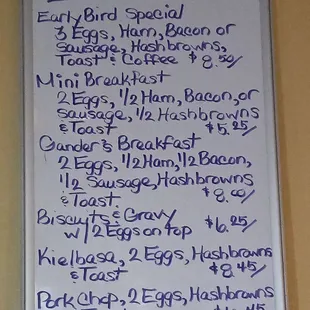 Early Bird Special
3 Eggs, Ham, Bacon or
Sausage, Hashbrowns,
Toast & Coffee $8.50/
Mini Breakfast
2 Eggs, 1/2 Ham, Bacon, or
Sausage, 1/2 Hashbrowns
& Toast $5.25/
Gander's Breakfast
2 Eggs, 1/2 Ham, 1/2 Bacon,
1/2 Sausage, Hashbrowns
& Toast. $8.00/
Biscuits & Gravy
w/ 2 Eggs on top $6.25/
Kielbasa, 2 Eggs, Hashbrowns
& Toast $8.45/
Pork Chop, 2 Eggs, Hashbrowns